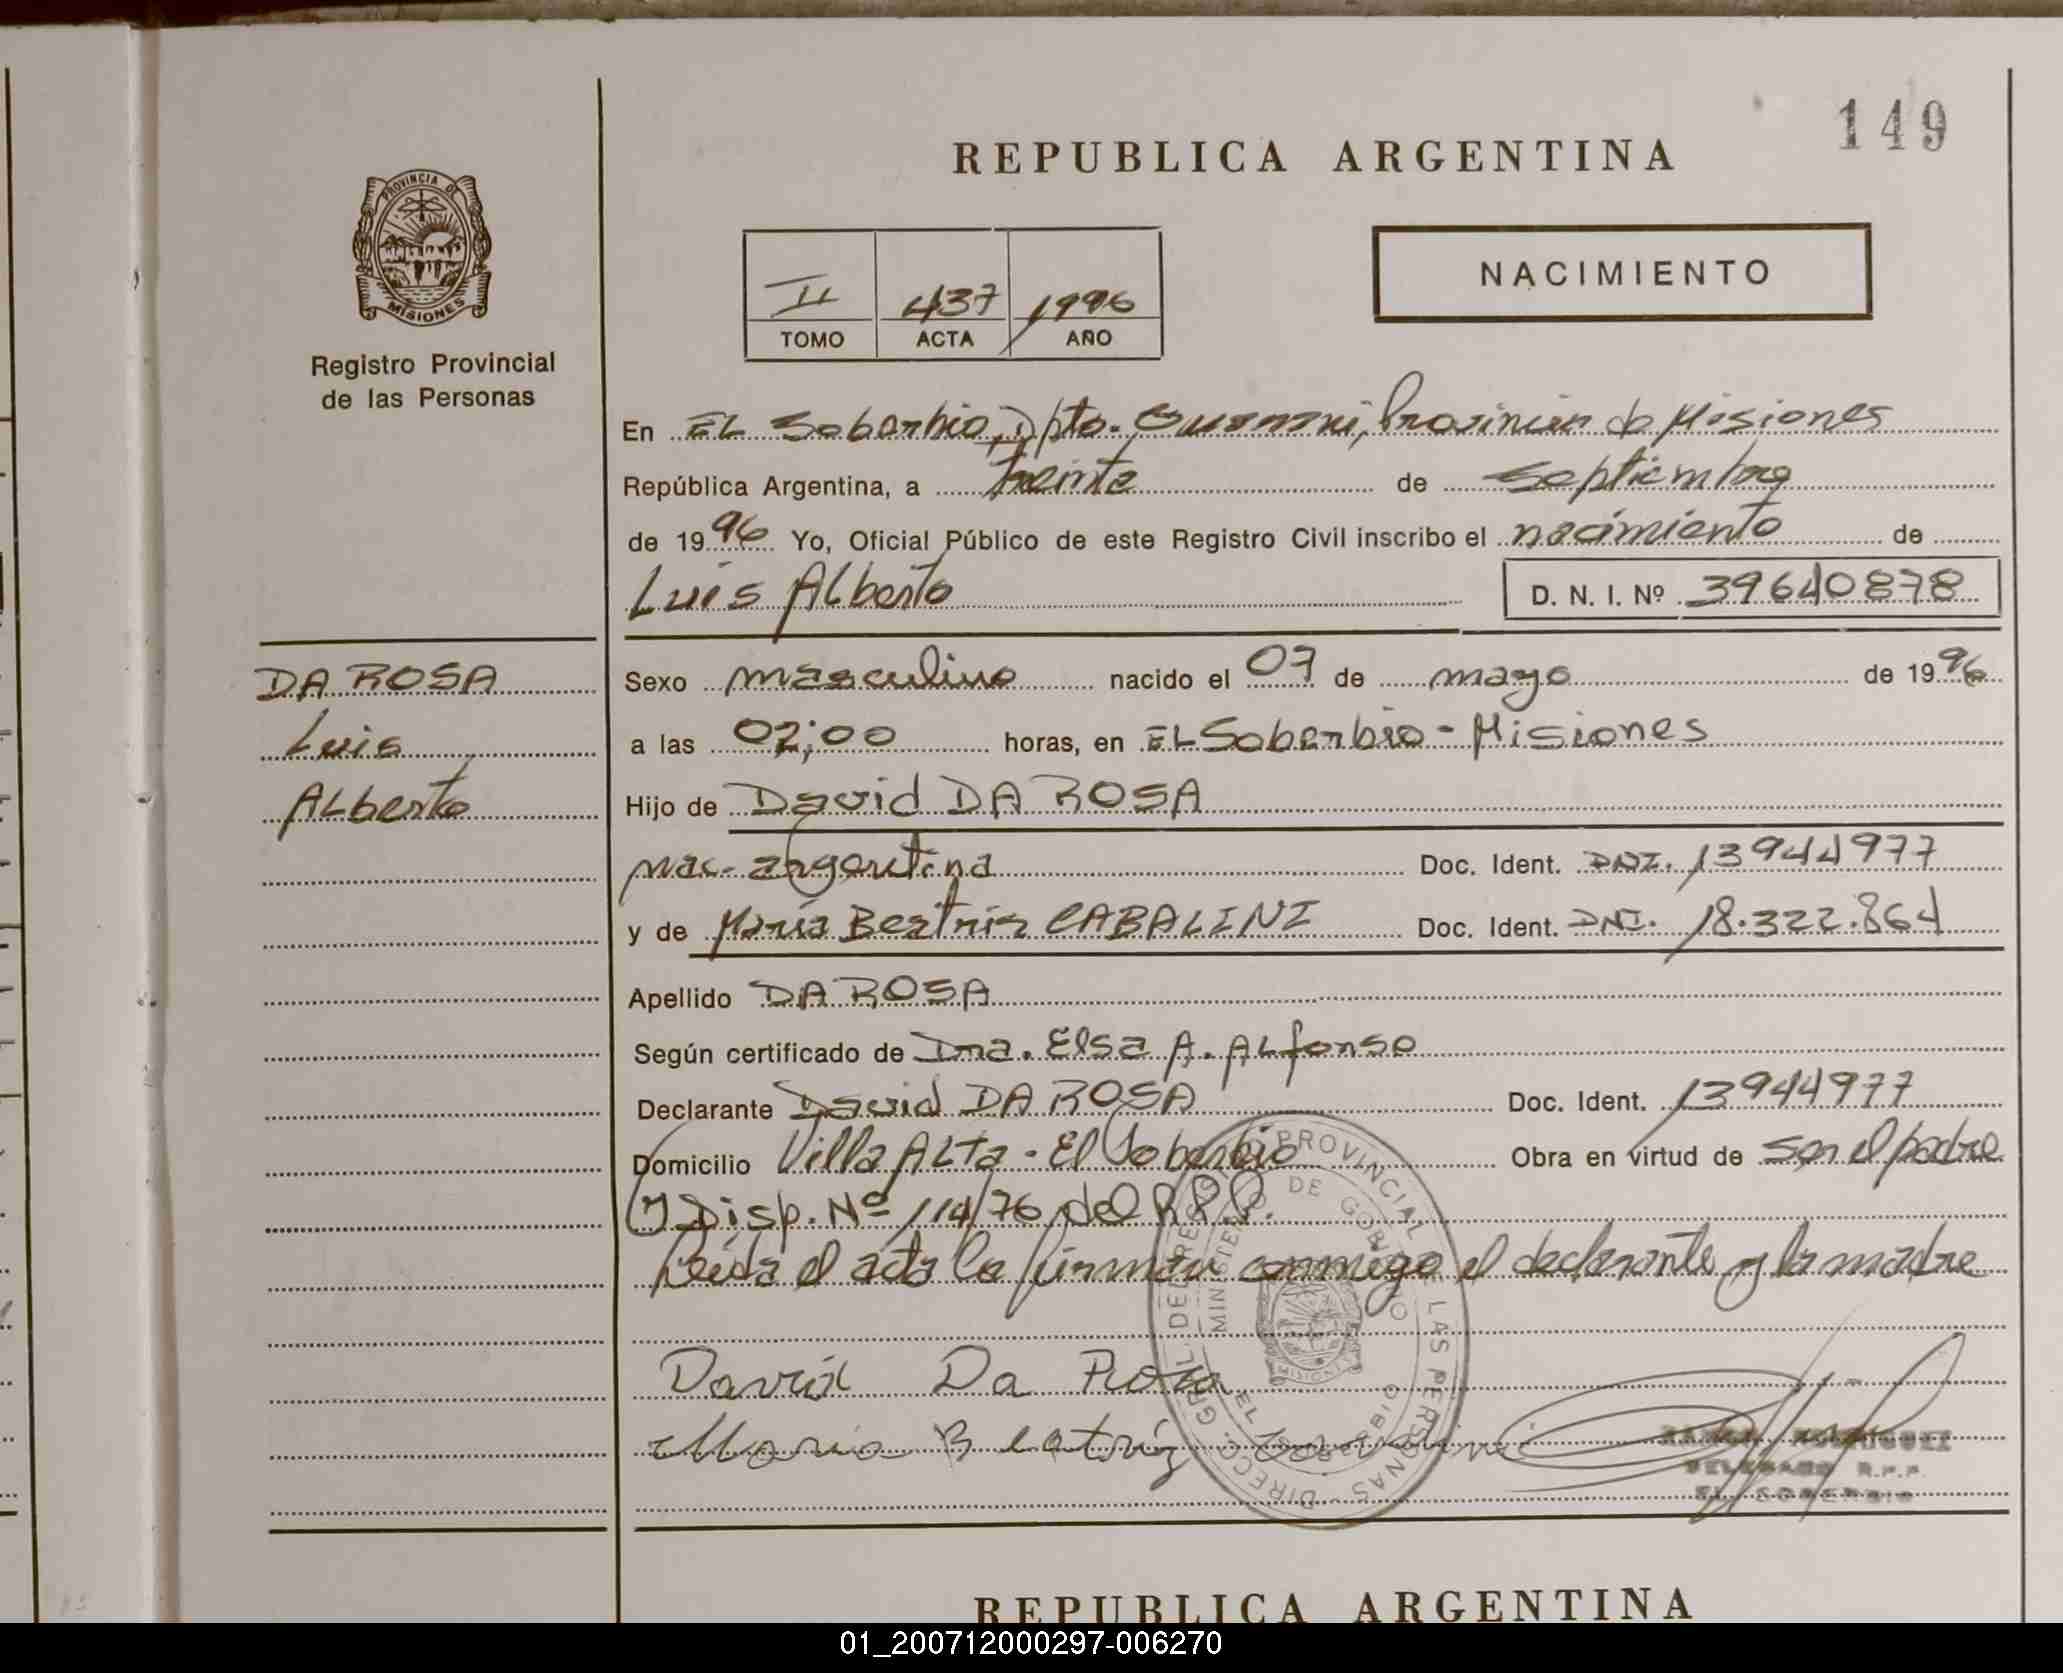 149
REPUBLICA ARGENTINA
PROVINCIA DE
MISIONES
Registro Provincial
de las Personas
NACIMIENTO
II 437 1996
TOMO ACTA AÑO
En EL Soberbio, Dpto. Guarani, Provincia de Misiones
República Argentina, a treinta de septiembre
de 1996 Yo, Oficial Público de este Registro Civil inscribo el nacimiento de
Luis Alberto D. N. I. Nº 39640878
DA ROSA
Luis
Alberto
Sexo masculino nacido el 07 de mayo de 1996
a las 02;00 horas, en EL Soberbio - Misiones
Hijo de David DA ROSA
nac. argentina Doc. Ident. DNI. 13944977
y de María Beatris CABALINI Doc. Ident. DNI. 18.322.864
Apellido DA ROSA
Según certificado de Dra. Elsa A. ALfonso
Declarante David DA ROSA Doc. Ident. 13944977
Domicilio Villa ALTa - El Soberbio Obra en virtud de ser el padre
Disp. Nº 114/76 del R.P.P.
Leida el acta la firman conmigo el declarante y la madre
David Da Rosa
Maria Beatriz
DIRECC. GRAL. DEL REG. PROVINCIAL DE LAS PERSONAS
MINISTERIO DE GOBIERNO
EL SOBERBIO
MISIONES
DELEGADO R.P.P.
EL SOBERBIO
REPUBLICA ARGENTINA
01_200712000297-006270